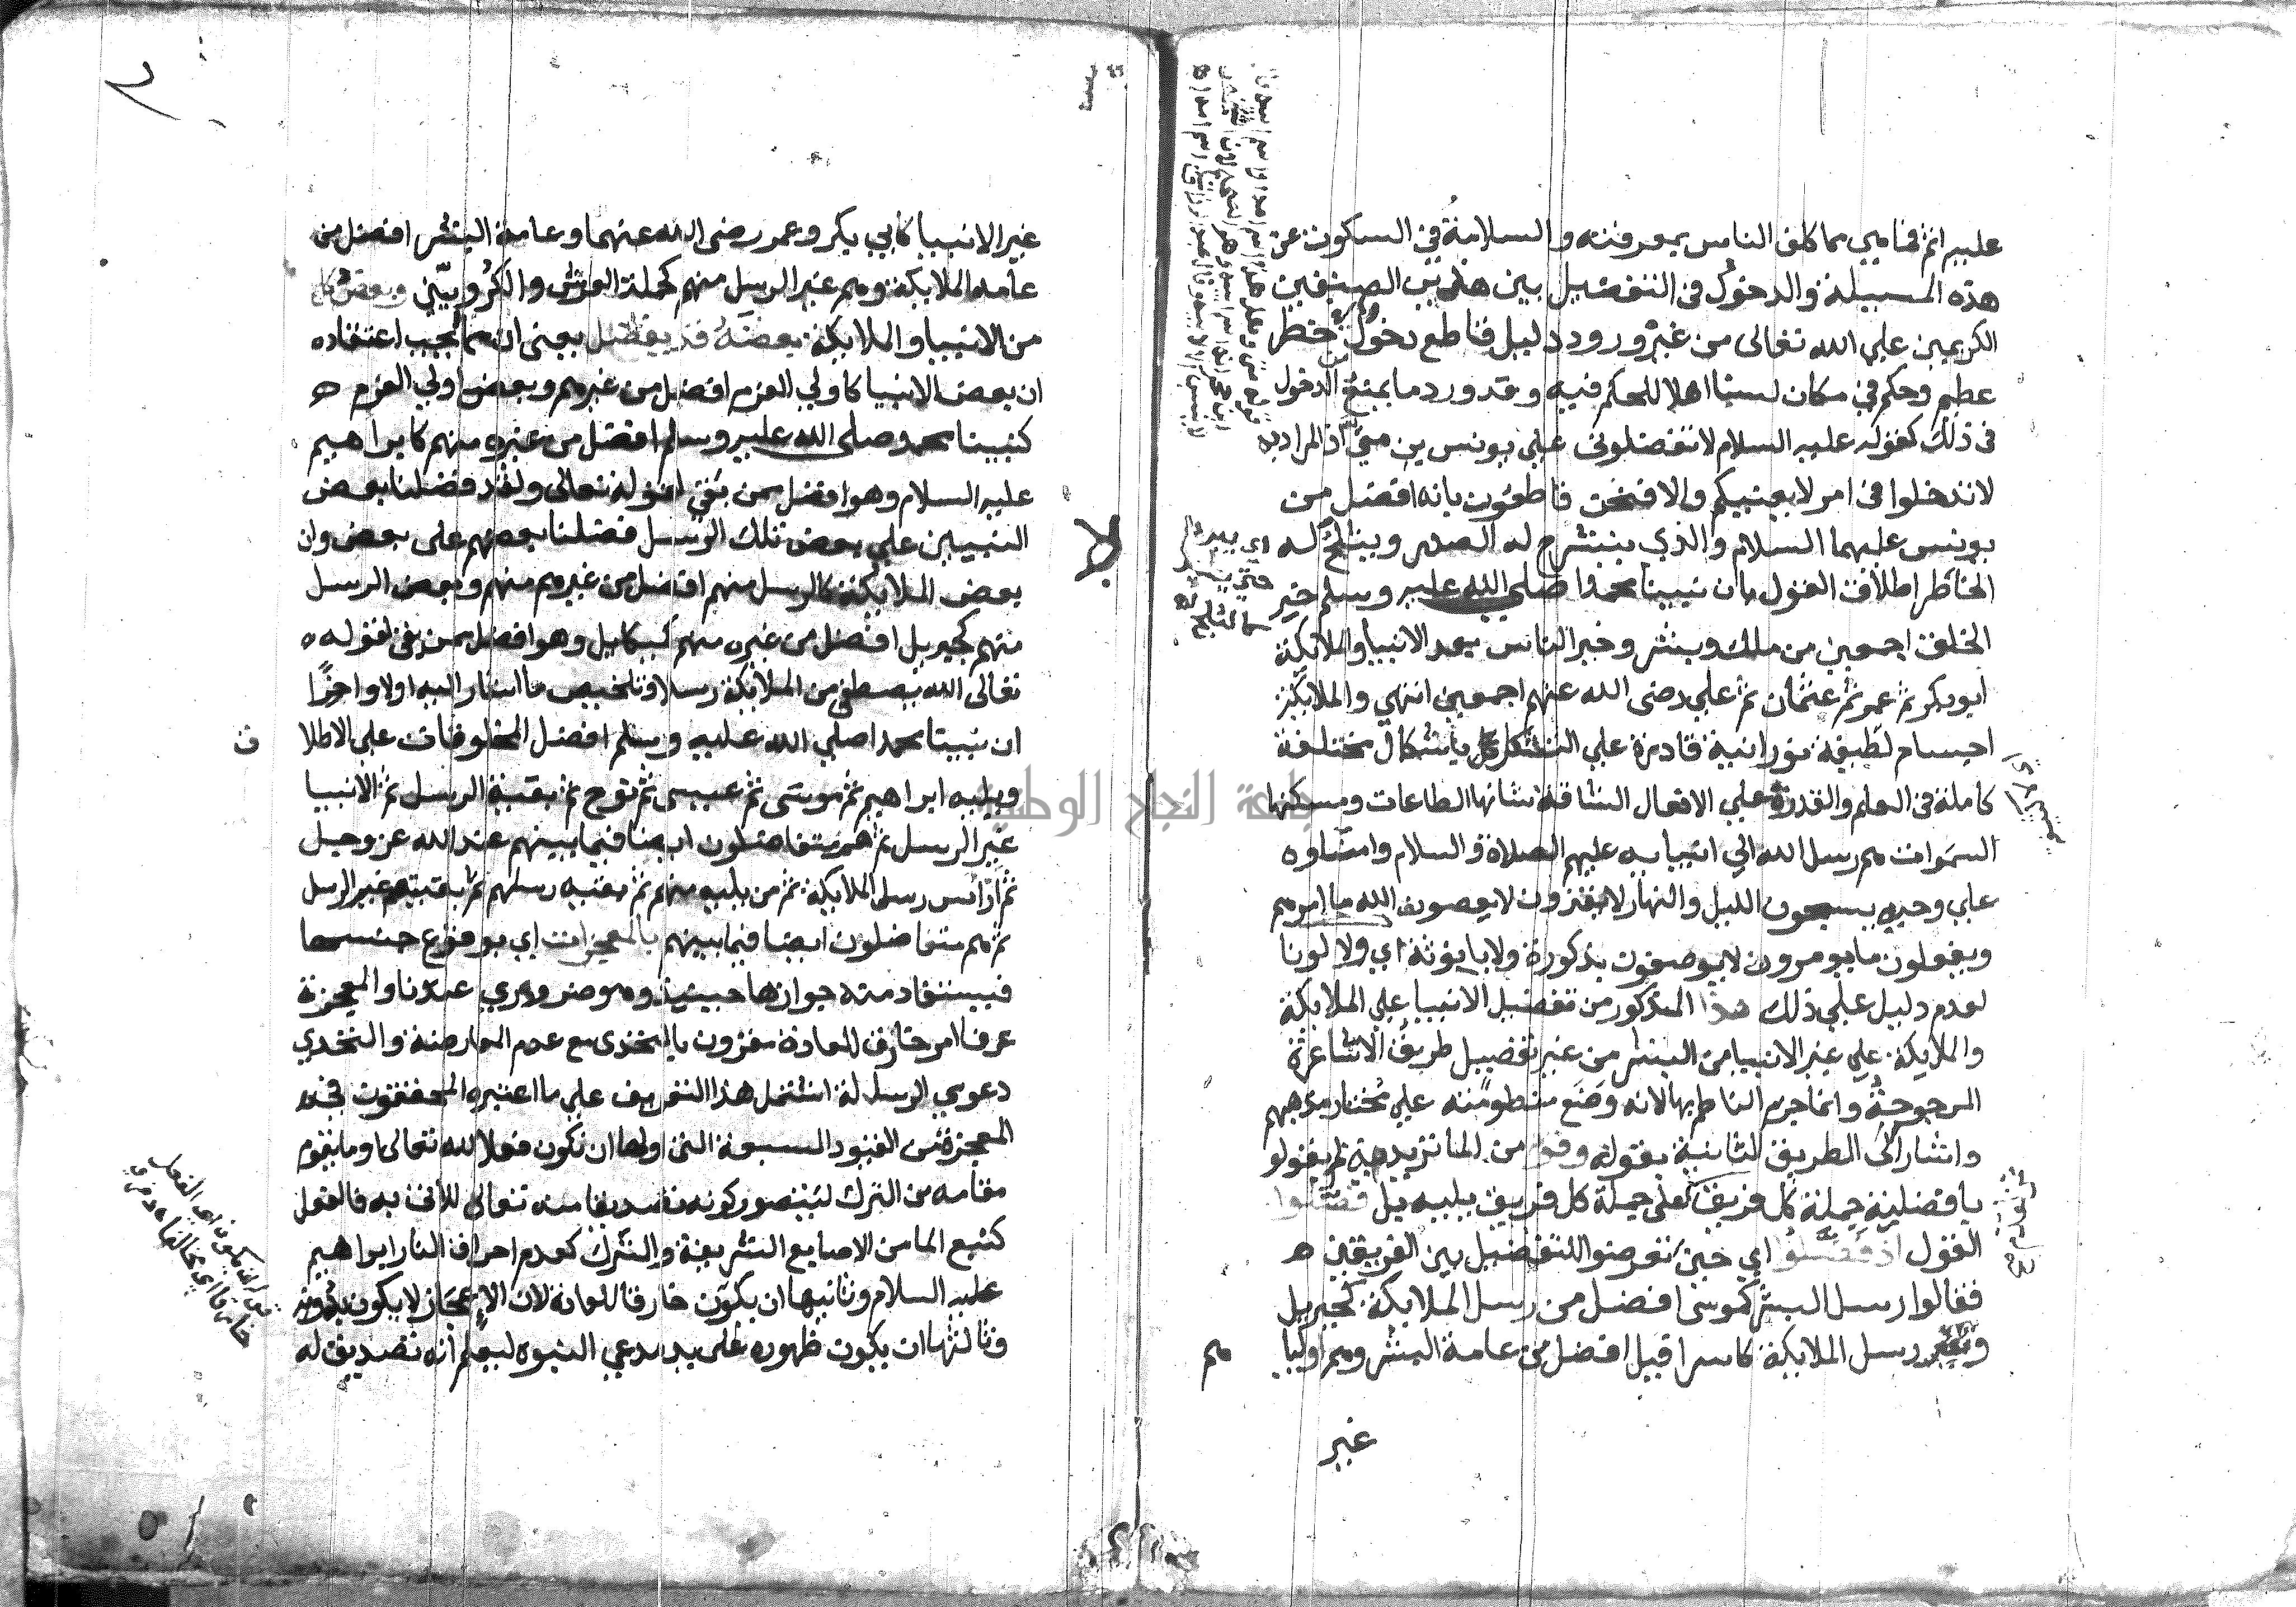 عليه اثم فما هي مما كلف الناس بمعرفته والسلامة في السكوت عن
هذه المسيلة والدخول في التفضيل بين هذين الصنفين
الكريمين علي الله تعالى من غير ورود دليل قاطع دخول في خطر
عظيم وحكم في مكان لسنا اهلا للحكم فيه وقد ورد ما يمنع من الدخول
في ذلك كقوله عليه السلام لا تفضلوني علي يونس بن متي اذ المراد به
لا تدخلوا في امر لا يعنيكم والا فنحن قاطعون بانه افضل من
يونس عليهما السلام والذي ينشرح له الصدر ويثلج له
الخاطر اطلاق القول بان نبينا محمدا صلي الله عليه وسلم خير
الخلق اجمعين من ملك وبشر وخير الناس بعد الانبيا والملايكة
ابو بكر ثم عمر ثم عثمان ثم علي رضى الله عنهم اجمعين انتهي والملايكة
اجسام لطيفة نورانية قادرة علي التشكل باشكال مختلفة
كاملة في العلم والقدرة علي الافعال الشاقة شانها الطاعات ومسكنها
السموات هم رسل الله الي انبيايه عليهم الصلاة والسلام وامناوه
علي وحيه يسبحون الليل والنهار لا يفترون لا يعصون الله ما امرهم
ويفعلون ما يومرون لا يوصفون بذكورة ولا بانوثة اي ولا لونا
لعدم دليل علي ذلك هذا المذكور من تفضيل الانبيا علي الملايكة
والملايكة علي غير الانبيا من البشر من غير تفصيل طريق الاشاعرة
المرجوحة وانما جزم الناظم بها لانه وضع منظومته علي مختار مذهبهم
واشار الى الطريق الثانية بقوله وقوم من الماتريدية لم يقولوا
بافضلية جملة كل فريق علي جملة كل فريق يليه بل فصلوا
القول اذ فضلوا اي حين تعرضوا للتفضيل بين الفريقين ه
فقالوا رسل البشر كموسى افضل من رسل الملايكة كجبريل
رسل الملايكة كاسرافيل افضل من عامة البشر وهم اوليا
هم
غير
غير الانبيا كابي بكر وعمر رضى الله عنهما وعامة البشر افضل من
عامه الملايكة وهم غير الرسل منهم كحملة العرش والكروبيين وبعض كل
من الانبيا والملايكة بعضه قد يفضل بمعنى ان مما يجب اعتقاده
ان بعض الانبيا كاولي العزم افضل من غيرهم وبعض اولي العزم ه
كنبينا محمد صلى الله عليه وسلم افضل من غيره منهم كابراهيم
عليه السلام وهو افضل ممن بقي لقوله تعالى ولقد فضلنا بعض
النبيين علي بعض تلك الرسل فضلنا بعضهم على بعض وان
بعض الملايكة كالرسل منهم افضل من غيرهم منهم وبعض الرسل
منهم كجبريل افضل من غيره منهم كميكاييل وهو افضل ممن بقي لقوله ه
تعالى الله يصطفي من الملايكة رسلا وتلخيص ما اشار اليه اولا واخرا
ان نبينا محمدا صلي الله عليه وسلم افضل المخلوقات علي الاطلا
ق
ويليه ابراهيم ثم موسى ثم عيسى ثم نوح ثم بقية الرسل ثم الانبيا
غير الرسل ثم هم متفاضلون ايضا فيما بينهم عند الله عز وجل
ثم رسل الملايكة ثم من يليه منهم ثم بقية رسلهم ثم بقيتهم غير الرسل
ثم هم متفاضلون ايضا فيما بينهم بالمعجزات اي بوقوع جنسها
فيستفاد منه جوازها حينيذ وهو ضروري عندنا والمعجزة
عرفا امر خارق للعادة مقرون بالتحدي مع عدم المعارضة والتحدي
دعوي الرسالة اشتمل هذا التعريف علي ما اعتبره المحققون في
المعجزة من القيود السبعة التي اولها ان تكون فعلا لله تعالى او ما يقوم
مقامه من الترك ليتصور كونه تصديقا منه تعالى للاتي به فالفعل
كنبع الما من الاصابع الشريفة والترك كعدم احراق النار ابراهيم
عليه السلام وثانيها ان يكون خارقا للعادة لان الاعجاز لا يكون بدونه
وثالثها ان يكون ظهوره على يد مدعي النبوه ليعلم انه تصديق له
جامعة النجاح الوطنية